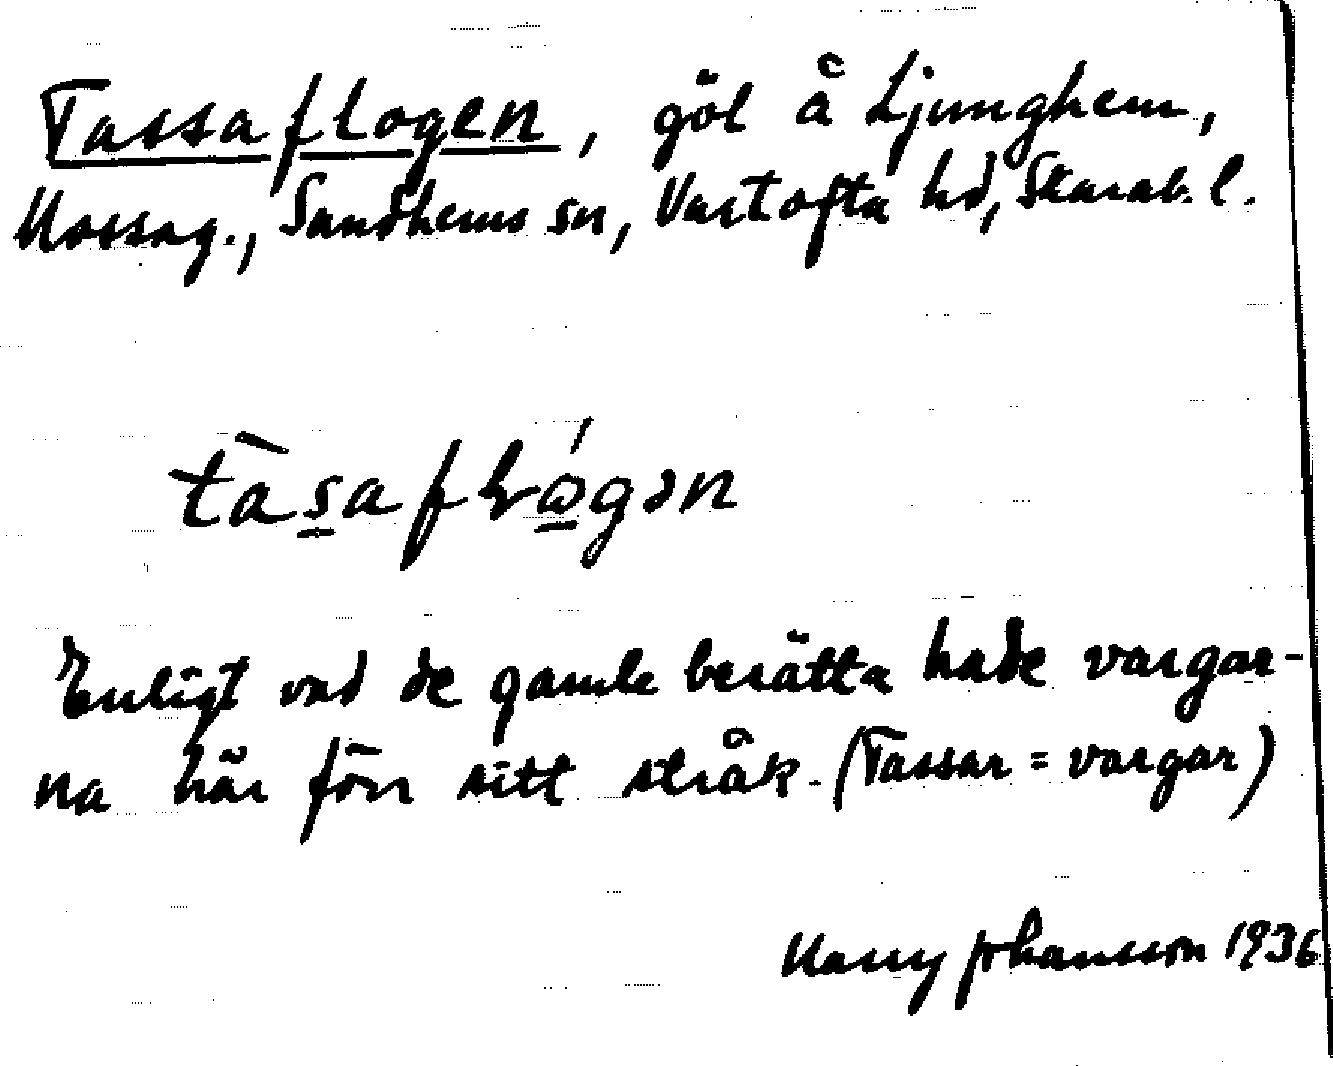 Tassaflogen, göl å Ljunghem,
Mossag., Sandhems sn, Vartofta hd, Skarab. l.
tàsaflǿgən
Enligt vad de gamle berätta hade vargar-
na här förr sitt stråk. (Tassar = vargar)
Harry Johansson 1936